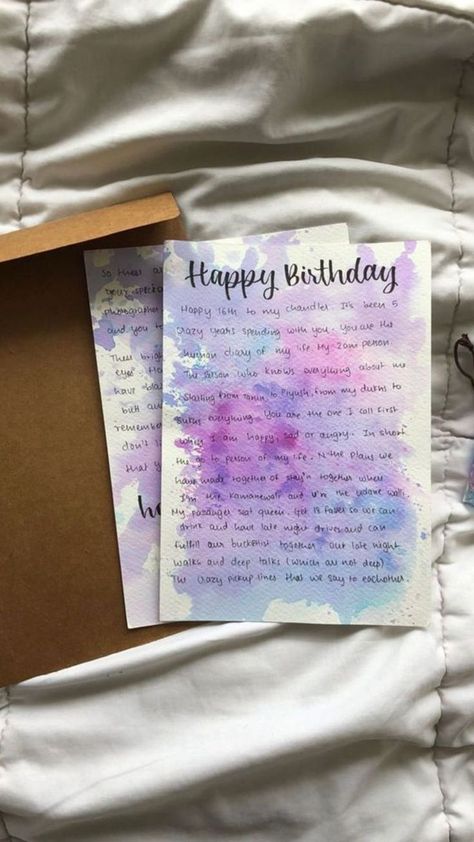 Happy Birthday
Happy 16th to my chandler. It's been 5
crazy years spending with you. You are the
human diary of my life My 2am person
The person who knows everything about me
starting from to Piyush, from my dukhs to
everything. You are the one I call first
when I am happy, sad or angry. In short
the go to person of my life. N the plans we
have made together of stay'n together where
I'm the kamanewali and u're the udane wali.
My passanger seat queen. Get 18 faster so we can
drink and have late night drives and can
fulfill our bucketlist together. Our late night
walks and deep talks (which are not deep)
The crazy pickup lines that we say to eachother.
So these are
your
photographer
and you to
Those
eyes.
have
butt
remember
don't
that y
h